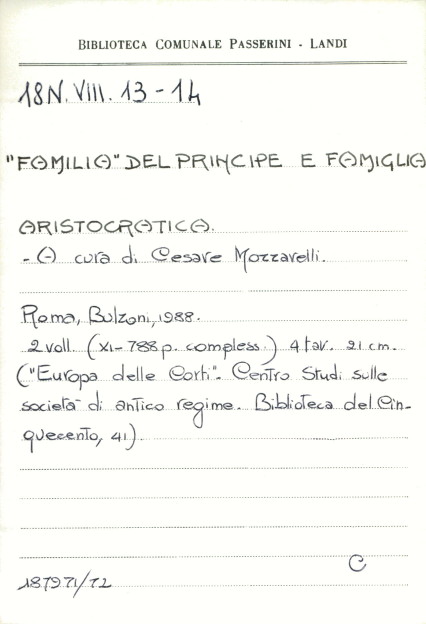 BIBLIOTECA COMUNALE PASSERINI - LANDI
18N. VIII. 13 - 14
"FAMILIA" DEL PRINCIPE E FAMIGLIA
ARISTOCRATICA.
- A cura di Cesare Mozzarelli.
Roma, Bulzoni, 1988.
2 voll. (XI-788 p. compless.) 4 tav. 21 cm.
("Europa delle Corti". Centro Studi sulle
società di antico regime. Biblioteca del Cin-
quecento, 41).
C
187971/72